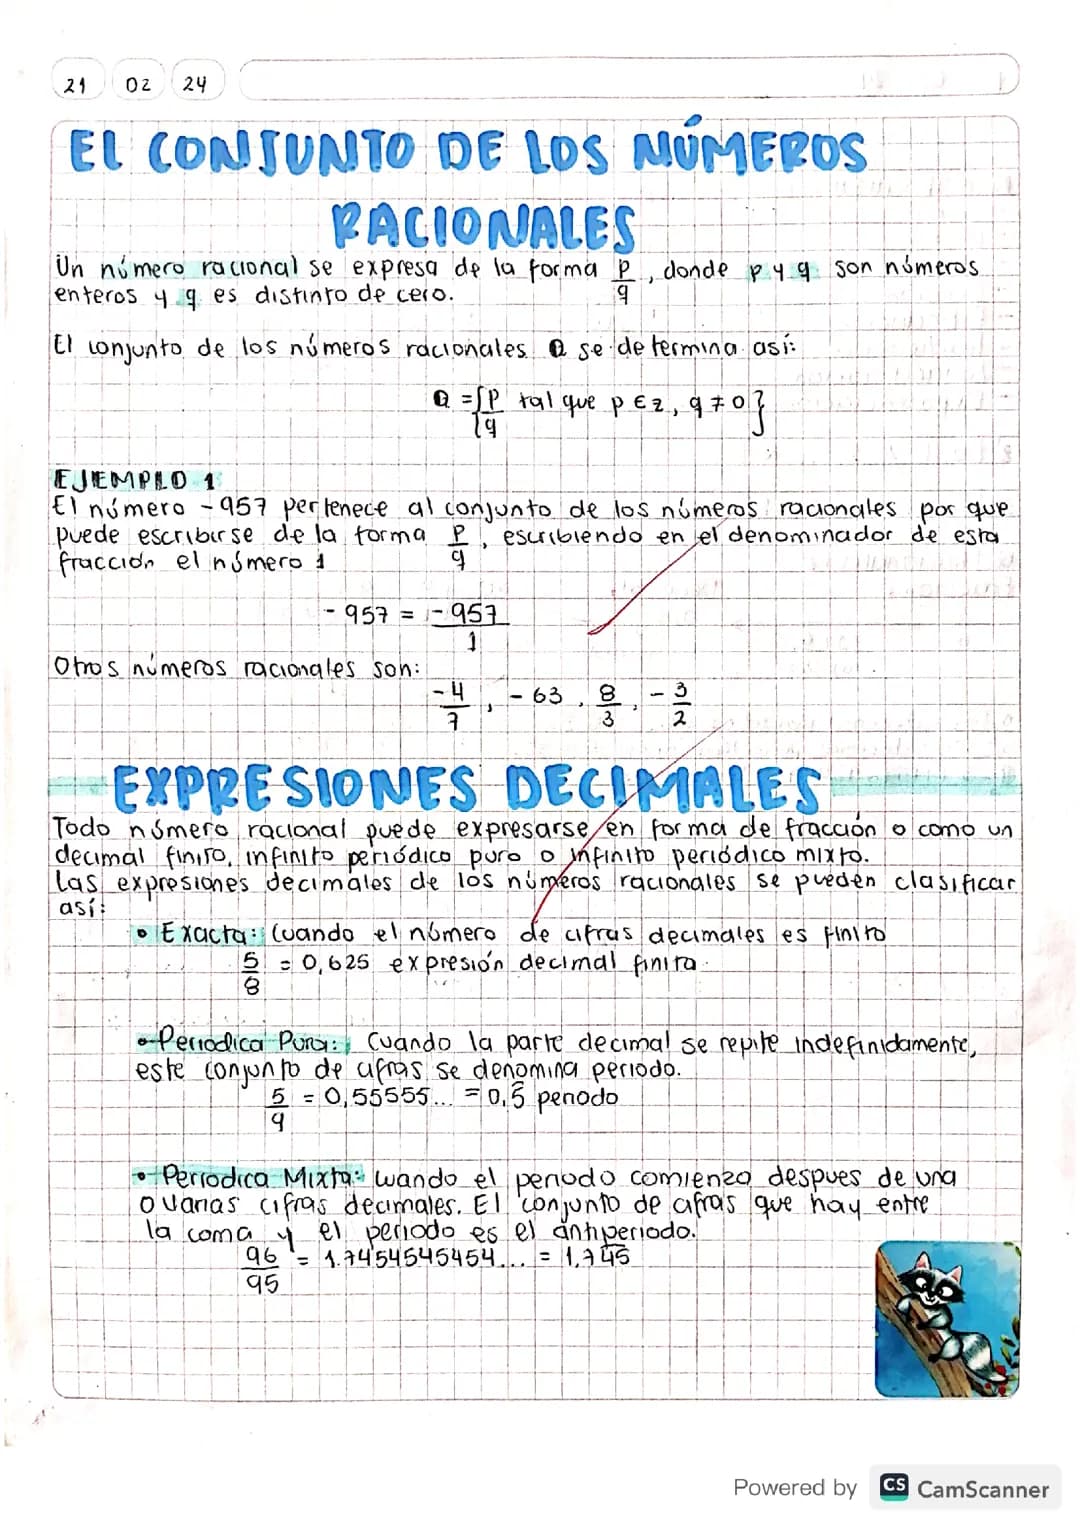 21 02 24
EL CONJUNTO DE LOS NÚMEROS
RACIONALES
Un número racional se expresa de la forma p/q, donde p y q son números
enteros y q es distinto de cero.
El conjunto de los números racionales Q se determina así:
Q = {p/q tal que p ∈ z, q ≠ 0}
EJEMPLO 1
El número -957 pertenece al conjunto de los números racionales por que
puede escribirse de la forma p/q, escribiendo en el denominador de esta
fracción el número 1
-957 = -957/1
Otros números racionales son:
-4/7, -63, 8/3, -3/2
EXPRESIONES DECIMALES
Todo número racional puede expresarse en forma de fracción o como un
decimal finito, infinito periódico puro o infinito periódico mixto.
Las expresiones decimales de los números racionales se pueden clasificar
así:
• Exacta: Cuando el número de cifras decimales es finito
5/8 = 0,625 expresión decimal finita
• Periodica Pura: Cuando la parte decimal se repite indefinidamente,
este conjunto de cifras se denomina periodo.
5/9 = 0,55555... = 0,5̄ periodo
• Periodica Mixta: Cuando el periodo comienza despues de una
o varias cifras decimales. El conjunto de cifras que hay entre
la coma y el periodo es el antiperiodo.
96/95 = 1.7454545454... = 1,745
Powered by CS CamScanner